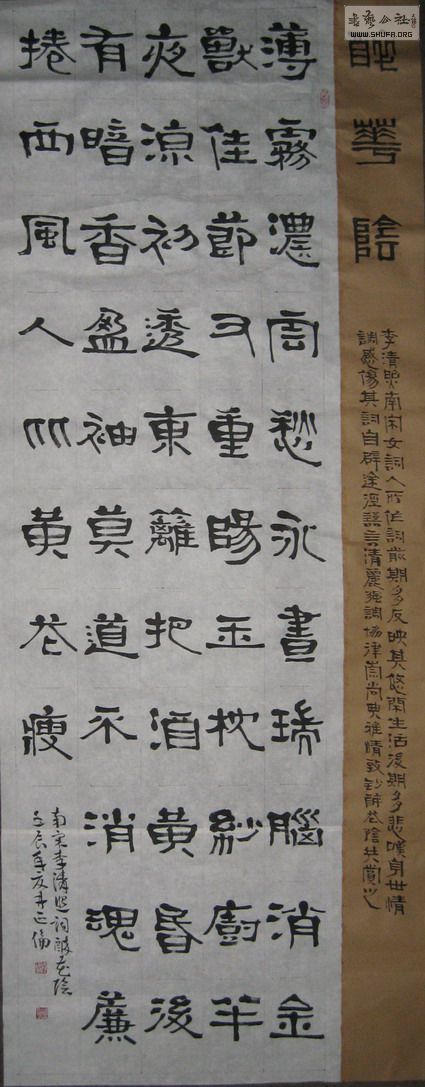 書藝公社
WWW.SHUFA.ORG
醉華陰
李清照南宋女詞人所作詞前期多反映其悠閑生活後期多悲嘆身世情
調感傷其詞自辟途徑語言清麗強調協律崇尚典雅情致鈔醉花陰共賞之
薄霧濃雲愁永晝瑞腦消金
獸佳節又重陽玉枕紗廚半
夜涼初透東籬把酒黃昏後
有暗香盈袖莫道不消魂簾
捲西風人比黃花瘦
南宋李清照詞醉花陰
壬辰年夏井正倫